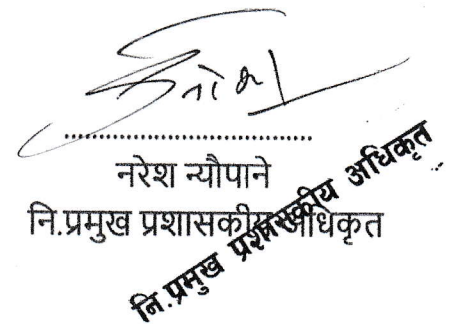 नरेश न्यौपाने
नि.प्रमुख प्रशासकीय अधिकृत
नि.प्रमुख प्रशासकीय अधिकृत